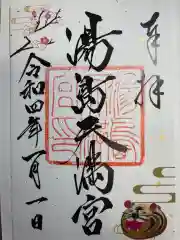 奉拝
湯島天満宮
令和四年一月一日